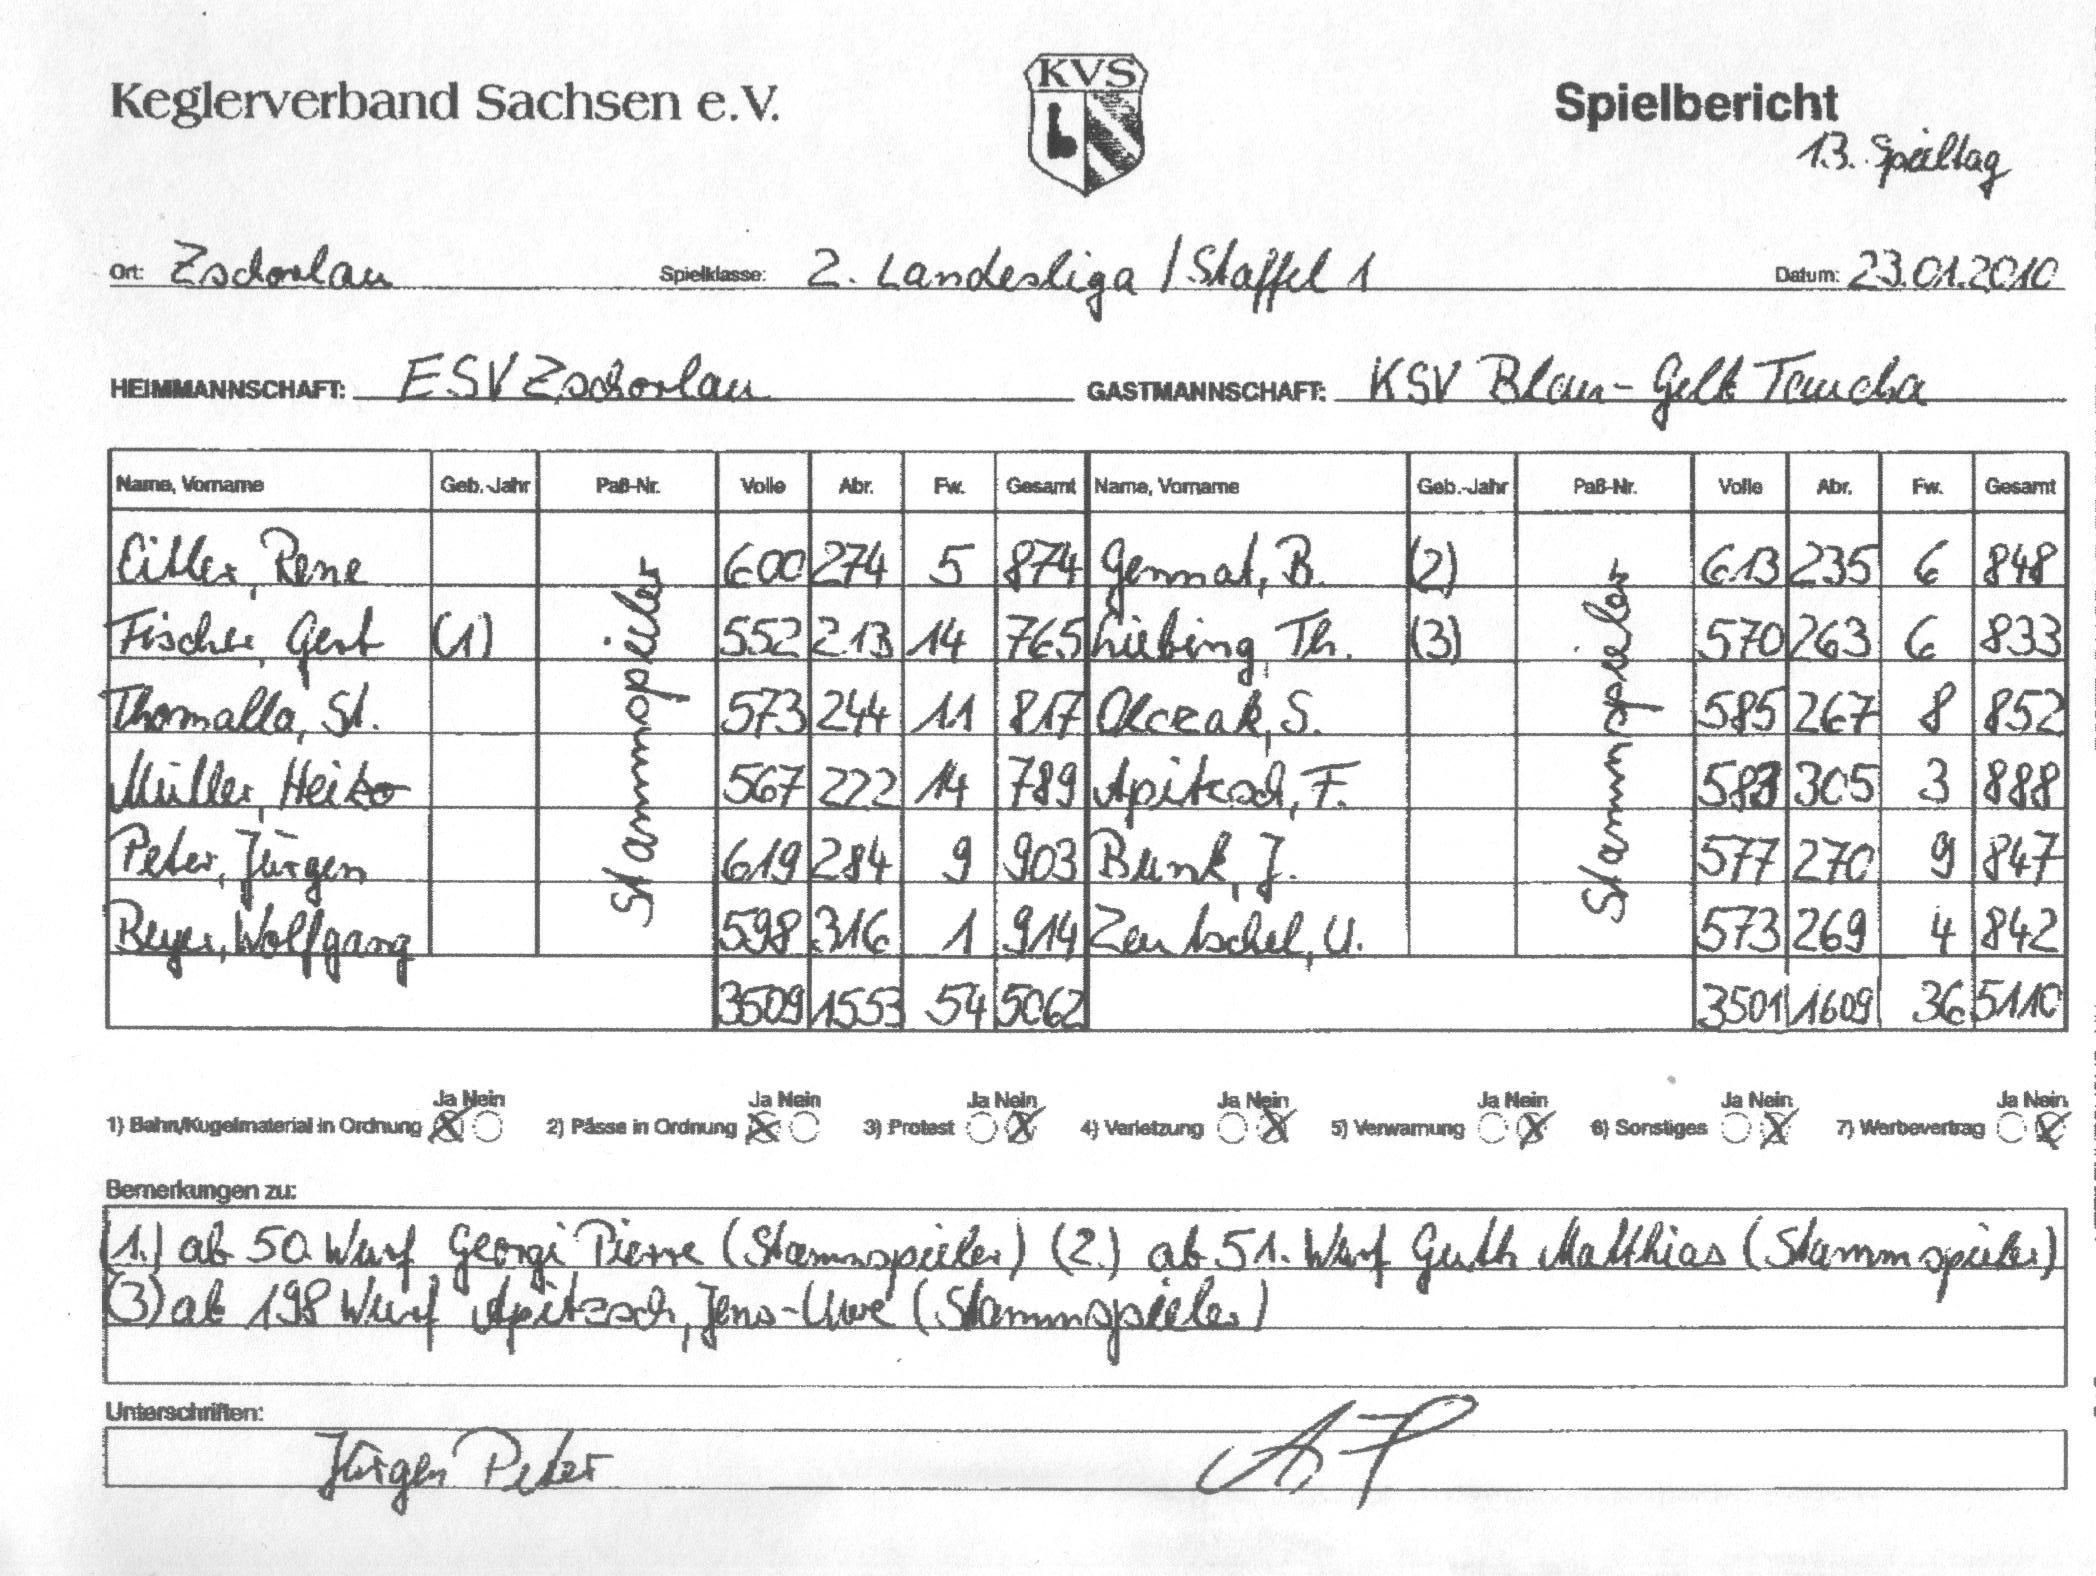 Keglerverband Sachsen e.V.
KVS
Spielbericht
13. Spieltag
Ort: Zschorlau Spielklasse: 2. Landesliga / Staffel 1 Datum: 23.01.2010
HEIMMANNSCHAFT: ESV Zschorlau GASTMANNSCHAFT: KSV Blau-Gelb Taucha
Name, Vorname Geb.-Jahr Paß-Nr. Volle Abr. Fw. Gesamt Name, Vorname Geb.-Jahr Paß-Nr. Volle Abr. Fw. Gesamt
Rene 600 274 5 874 Gennat, B. (2) 613 235 6 848
Fischer, Gert (1) 552 213 14 765 Liebing, Th. (3) 570 263 6 833
Thomalla, St. 573 244 11 817 Olczak, S. 585 267 8 852
Müller, Heiko 567 222 14 789 Apitzsch, F. 583 305 3 888
Peter, Jürgen 619 284 9 903 Bunk, J. 577 270 9 847
Beyer, Wolfgang 598 316 1 914 Zentschel, U. 573 269 4 842
Stammspieler Stammspieler
3509 1553 54 5062 3501 1609 36 5110
Ja Nein Ja Nein Ja Nein Ja Nein Ja Nein Ja Nein Ja Nein
1) Bahn/Kugelmaterial in Ordnung 2) Pässe in Ordnung 3) Protest 4) Verletzung 5) Verwarnung 6) Sonstiges 7) Werbevertrag
Bemerkungen zu:
(1.) ab 50 Wurf Georgi Pierre (Stammspieler) (2.) ab 51. Wurf Guth Matthias (Stammspieler)
(3) ab 198 Wurf Apitzsch, Jens-Uwe (Stammspieler)
Unterschriften:
Jürgen Peter